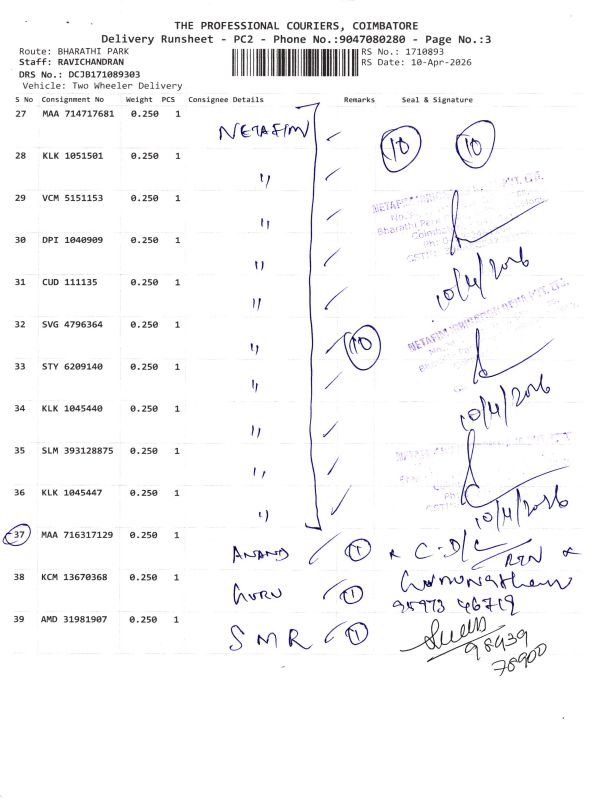 THE PROFESSIONAL COURIERS, COIMBATORE
Delivery Runsheet - PC2 - Phone No.:9047080280 - Page No.:3
Route: BHARATHI PARK
RS No.: 1710893
Staff: RAVICHANDRAN
RS Date: 10-Apr-2026
DRS No.: DCJB171089303
Vehicle: Two Wheeler Delivery
S No Consignment No Weight PCS Consignee Details Remarks Seal & Signature
27 MAA 714717681 0.250 1 NETAFIM
10 10
28 KLK 1051501 0.250 1 "
29 VCM 5151153 0.250 1 "
30 DPI 1040909 0.250 1 "
31 CUD 111135 0.250 1 "
10/4/2026
32 SVG 4796364 0.250 1 " 10
33 STY 6209140 0.250 1 "
34 KLK 1045440 0.250 1 "
10/4/2026
35 SLM 393128875 0.250 1 "
36 KLK 1045447 0.250 1 "
10/4/2026
37 MAA 716317129 0.250 1 ANAND 1 C-D/C
RTN
38 KCM 13670368 0.250 1 GURU 1
95973 46719
39 AMD 31981907 0.250 1 SMR 1
98939
78900